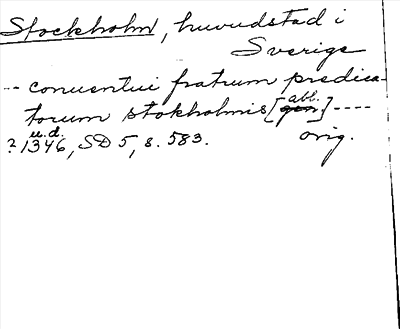 Stockholm, huvudstad i
Sverige
-- conuentui fratrum predica-
torum stokholmis [gen. abl.] ----
? u.d. 1346, SD 5, s. 583. orig.